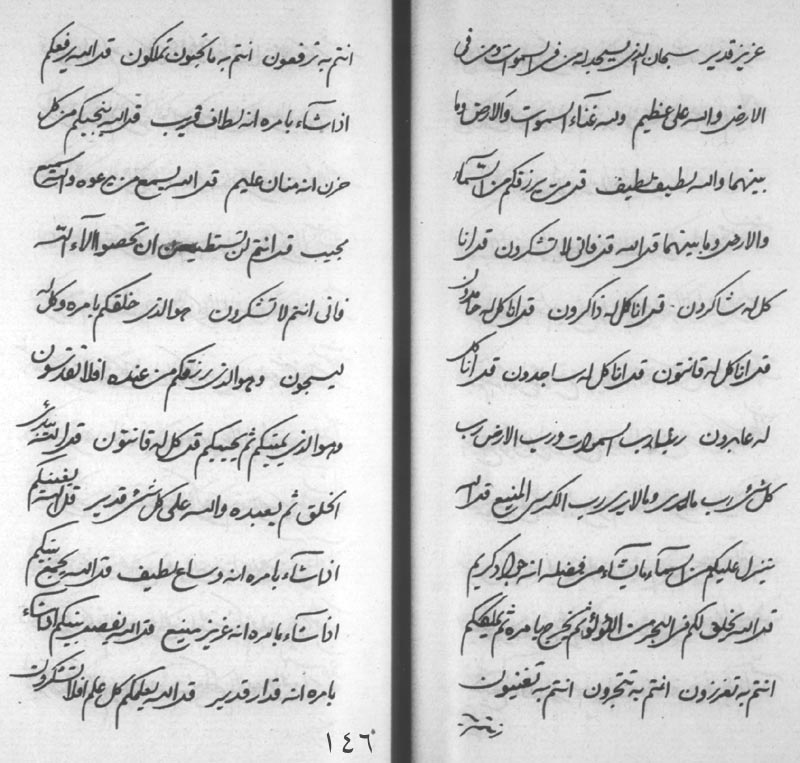 عزیز قدیر سبحان الذی یسجد له من فی السموات و من فی
الارض و الله علی عظیم ولله غناء السموات والارض وما
بینهما والله لطیف لطیف قل من یرزقکم من السماء
والارض وما بینهما قل الله قل فانی لا تشکرون قل انا
کل له شاکرون قل انا کل له ذاکرون قل انا کل له حامدون
قل انا کل له قانتون قل انا کل له ساجدون قل انا کل
له عابدون رب السموات ورب الارض رب
کل شیء رب ما یری وما لا یری رب الکرسی المنیع قل الله
ینزل علیکم من السماء ما یشاء من فضله انه جواد کریم
قل الله یخلق لکم فی البحر من اللؤلؤ ثم یخرج بامره ثم یملککم
انتم به تعززون انتم به تتجرون انتم به تغنیون
انتم به ترفعون انتم به ما تحبون تملکون قل الله یرفعکم
اذا شاء بامره انه لطاف قریب قل الله ینجیکم من کل
حزن انه منان علیم قل الله یسمع من یدعوه والله سمیع
مجیب قل انتم لن تستطیعن ان تحصوا آلاء الله
فانی انتم لا تشکرون هو الذی خلقکم بامره وکل له
لیسجدون وهو الذی رزقکم من عنده افلا تقدسون
وهو الذی یمیتکم ثم یحییکم قل کل له قانتون قل الله یبدئ
الخلق ثم یعیده والله علی کل شیء قدیر قل الله یغنینکم
اذا شاء بامره انه وساع لطیف قل الله یجمع بینکم
اذا شاء بامره انه عزیز منیع قل الله یفصل بینکم اذا شاء
بامره انه قدار قدیر قل الله یعلمکم کل علم افلا تشکرون
١٤٦